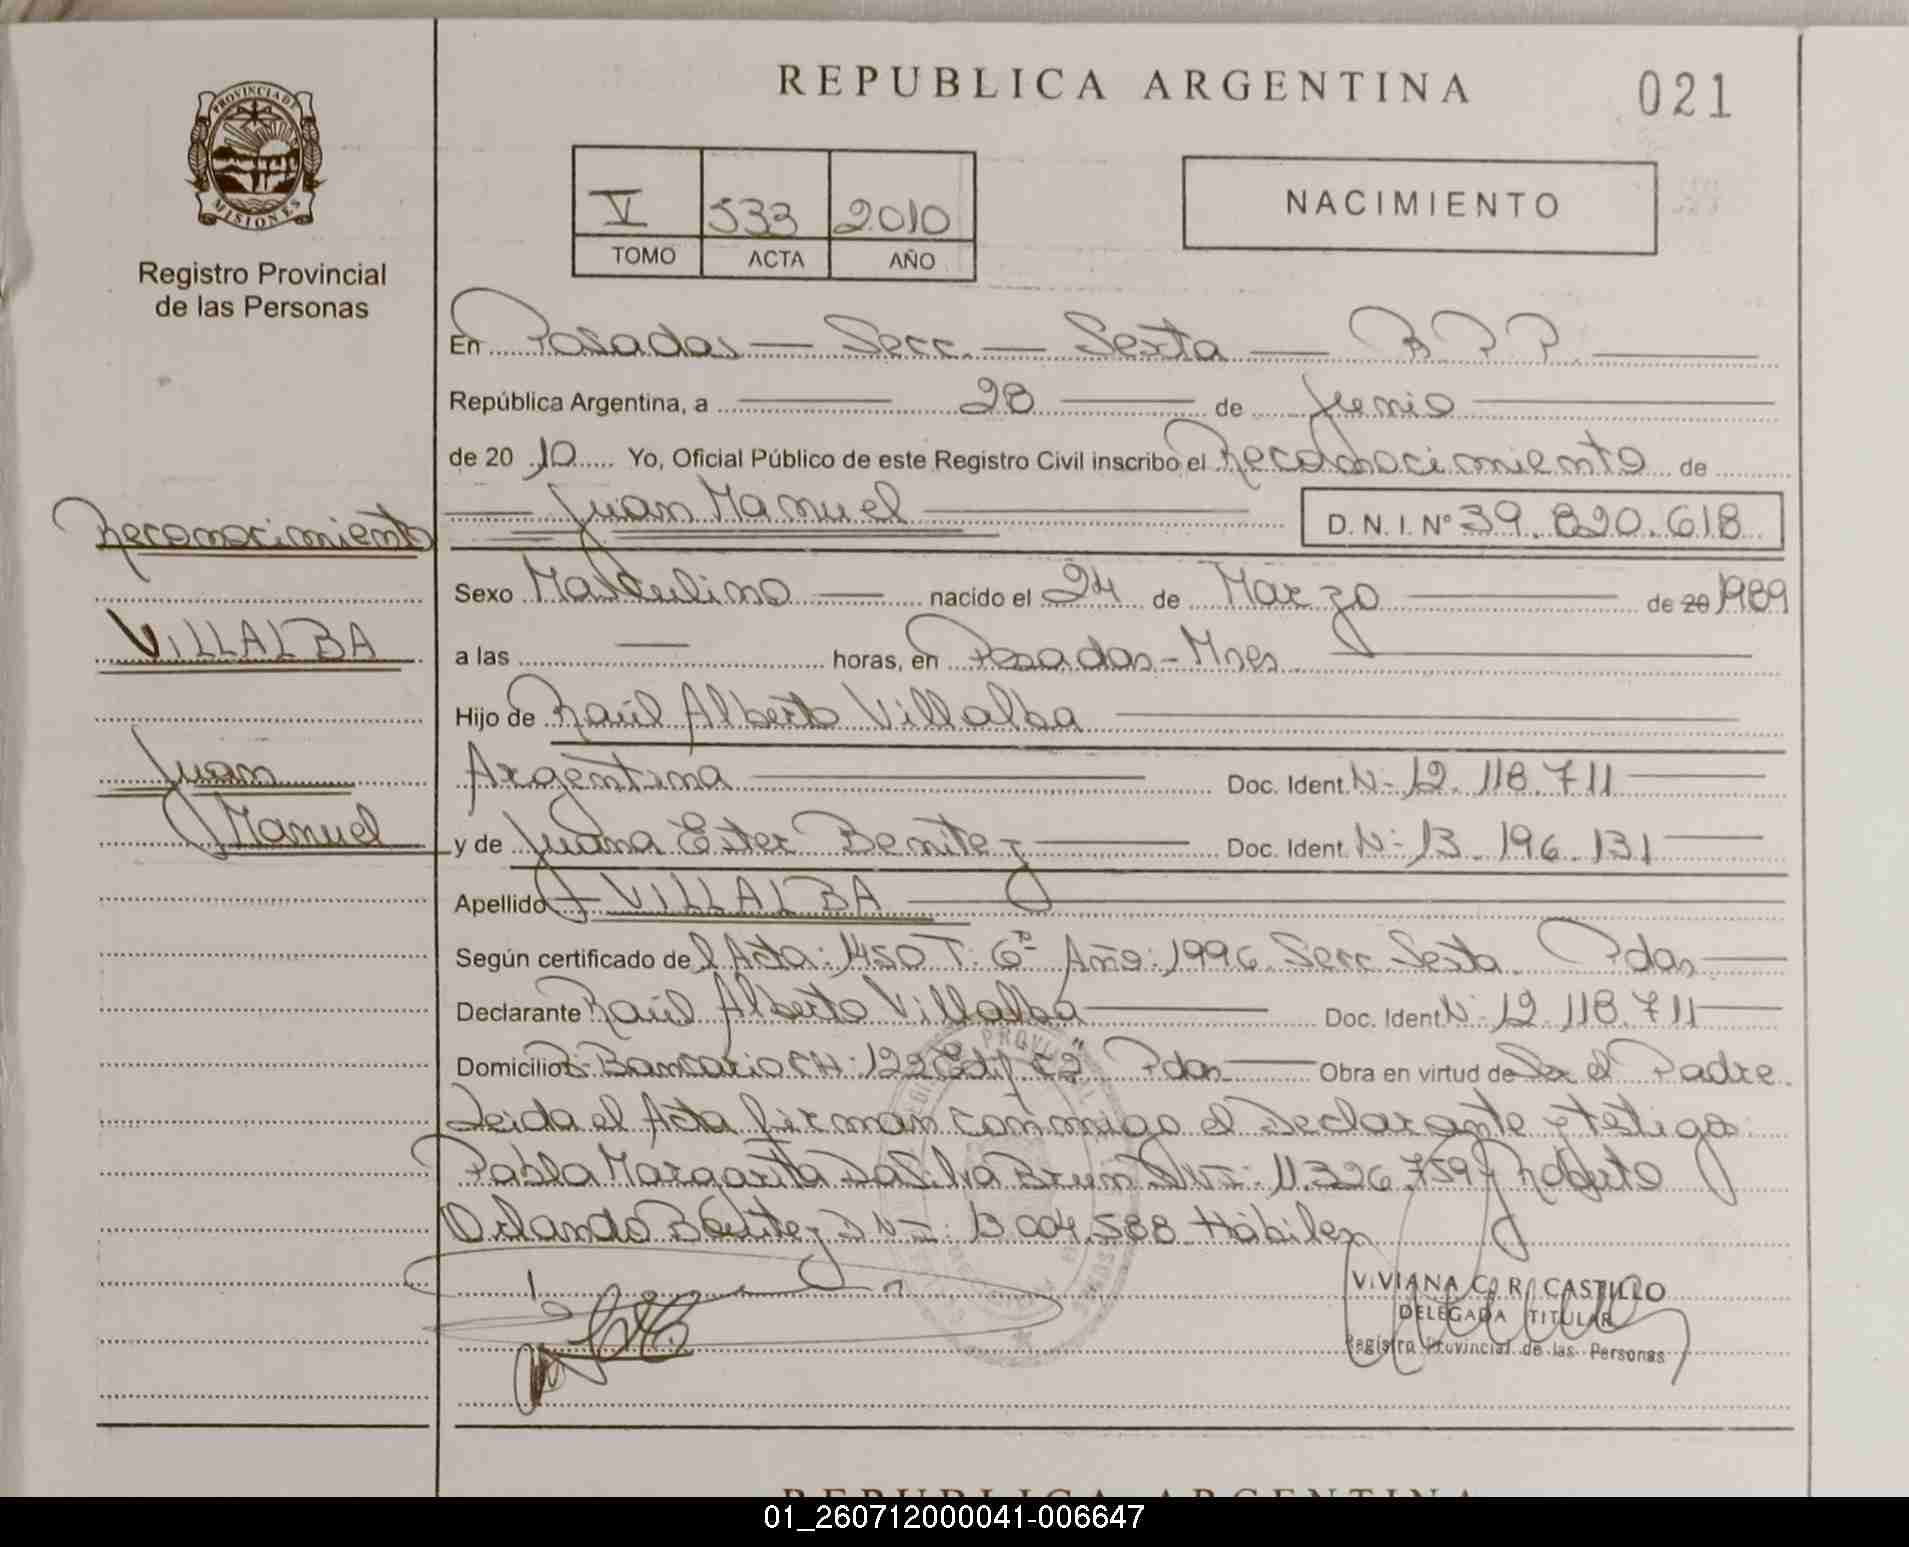 REPUBLICA ARGENTINA
021
PROVINCIA DE
MISIONES
Registro Provincial
de las Personas
V 533 2010
TOMO ACTA AÑO
NACIMIENTO
En Posadas — Secc. — Sexta — R.P.P.
República Argentina, a 28 de Junio
de 20 10 Yo, Oficial Público de este Registro Civil inscribo el Reconocimiento de
Juan Manuel D.N.I. Nº 39.820.618
Reconocimiento
Sexo Masculino nacido el 24 de Marzo de 20 1989
VILLALBA
a las — horas, en Posadas - Mnes
Hijo de Raúl Alberto Villalba
Juan
Argentina Doc. Ident. N- 12.118.711
Manuel
y de Juana Ester Benitez Doc. Ident. N- 13.196.131
Apellido VILLALBA
Según certificado de l Acta: 1450 T: 6º Año: 1996 Secc Sexta Pdas
Declarante Raúl Alberto Villalba Doc. Ident N- 12.118.711
Domicilio Bº Bancario CH: 122 Edif C2" Pdas Obra en virtud de Ser el Padre
Leida el Acta firman conmigo el Declarante y testigos:
Pabla Margarita DaSilva Brum DNI: 11.326.759 y Roberto
Orlando Benitez DNI: 13.004.588 Hábiles
VIVIANA C. R. CASTILLO
DELEGADA TITULAR
Registro Provincial de las Personas
REPUBLICA ARGENTINA
01_260712000041-006647